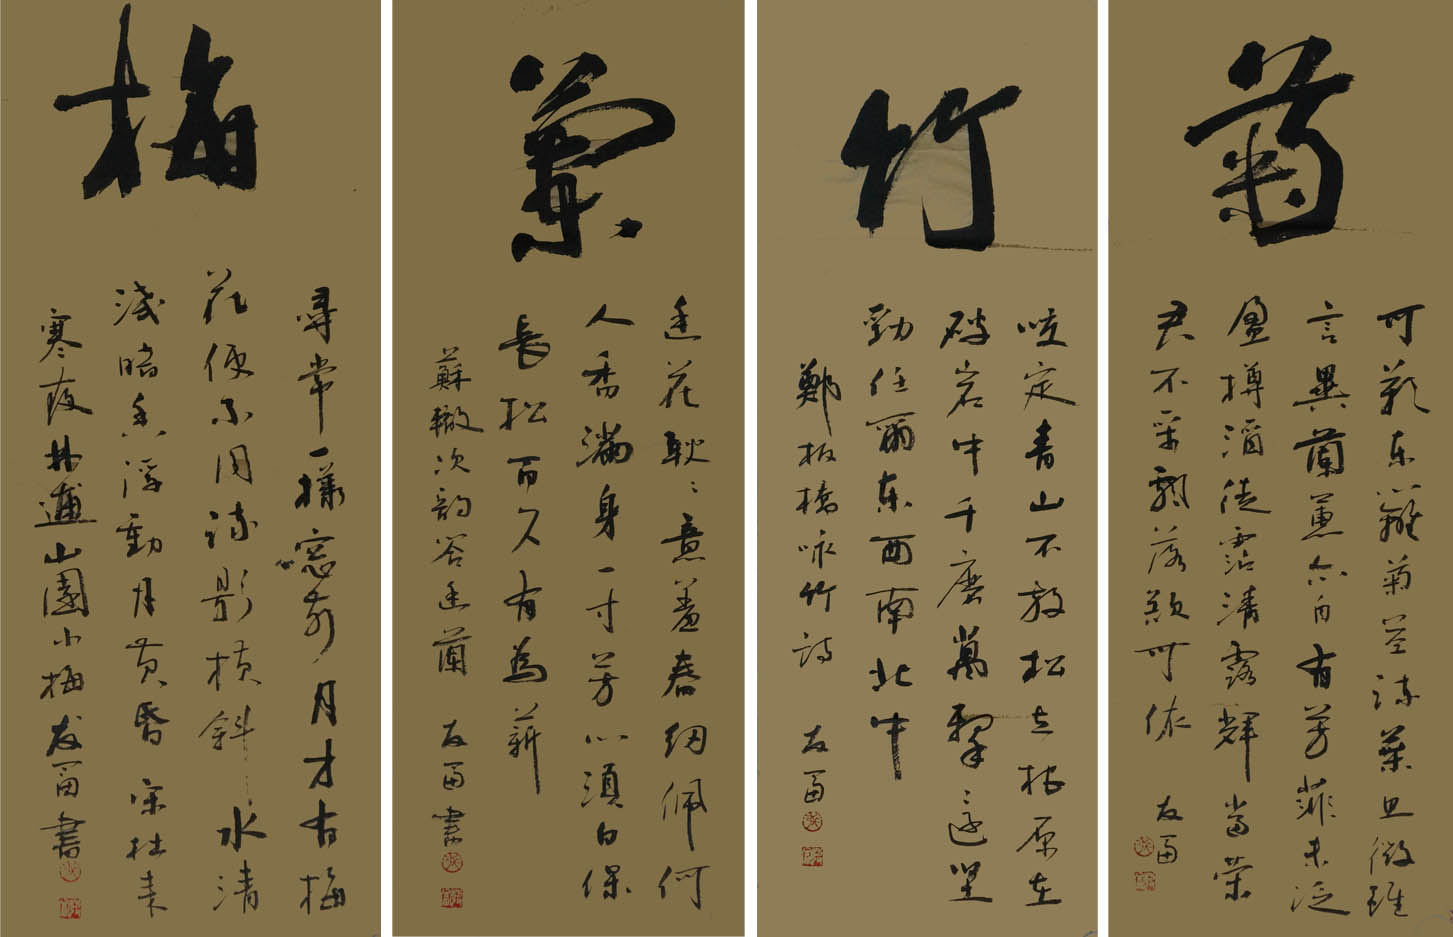 梅
尋常一樣窓前月才有梅
花便不同疎影横斜水清
浅暗香浮動月黄昏 宋杜耒
寒夜林逋山園小梅友富書
蘭
幽花耿々意羞春紉佩何
人香滿身一寸芳心須自保
長松百尺有為薪
蘇轍次韵答幽蘭 友富書
竹
咬定青山不放松立根原在
破岩中千磨萬擊還堅
勁任爾東西南北中
鄭板橋咏竹詩 友富
菊
可歎東籬菊莖疎葉且微雖
言異蘭蕙亦自有芳菲未泛
盈樽酒徒霑清露輝當榮
君不采飄落欲何依 友富